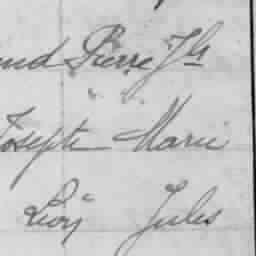 and Pierre Jh
Joseph Marie
Léon Jules